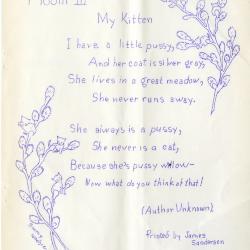 Room III
My Kitten
I have a little pussy,
And her coat is silver gray,
She lives in a great meadow,
She never runs away.
She always is a pussy,
She never is a cat,
Because she's pussy willow—
Now what do you think of that!
(Author Unknown)
Printed by James
Sanderson